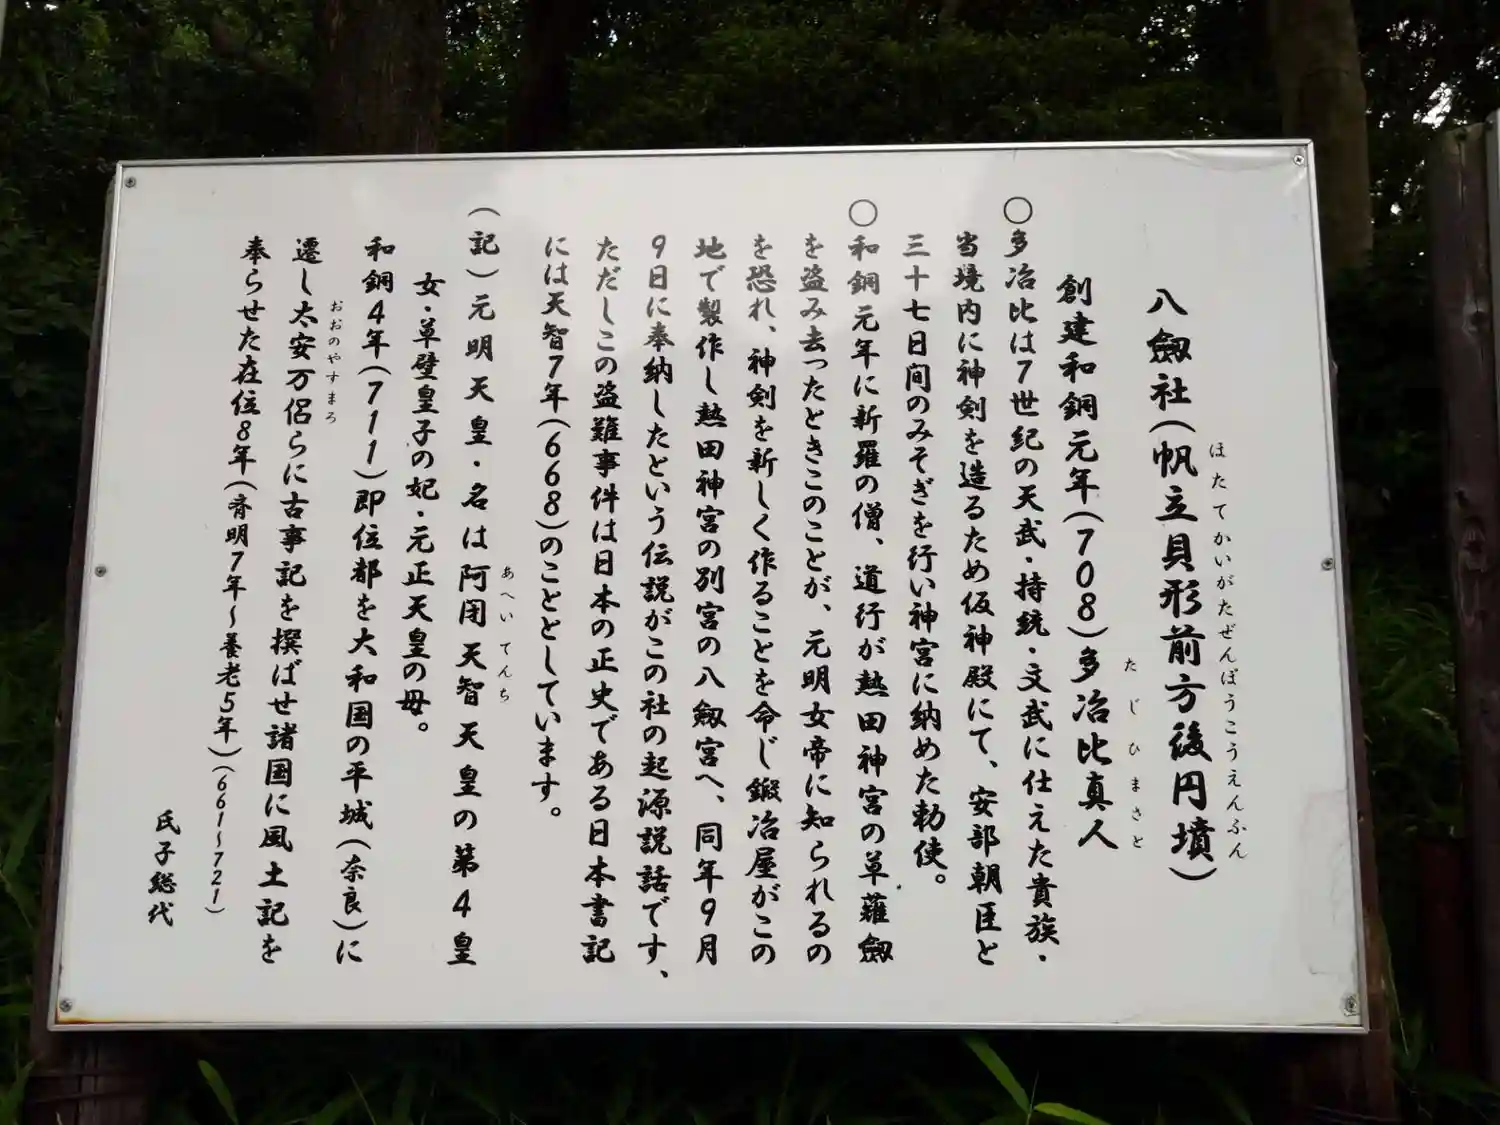 八劔社(帆立貝形前方後円墳)
ほたてかいがたぜんぽうこうえんふん
創建和銅元年(708)多治比真人
たじひまさと
〇多治比は7世紀の天武・持統・文武に仕えた貴族・
当境内に神剣を造るため仮神殿にて、安部朝臣と
三十七日間のみそぎを行い神宮に納めた勅使。
〇和銅元年に新羅の僧、道行が熱田神宮の草薙劔
を盗み去ったときこのことが、元明女帝に知られるの
を恐れ、神剣を新しく作ることを命じ鍛冶屋がこの
地で製作し熱田神宮の別宮の八劔宮へ、同年9月
9日に奉納したという伝説がこの社の起源説話です、
ただしこの盗難事件は日本の正史である日本書記
には天智7年(668)のこととしています。
(記)元明天皇・名は阿閉天智天皇の第4皇
あへいてんち
女・草壁皇子の妃・元正天皇の母。
和銅4年(711)即位都を大和国の平城(奈良)に
遷し太安万侶らに古事記を撰ばせ諸国に風土記を
おおのやすまろ
奉らせた在位8年(斉明7年〜養老5年)(661〜721)
氏子総代